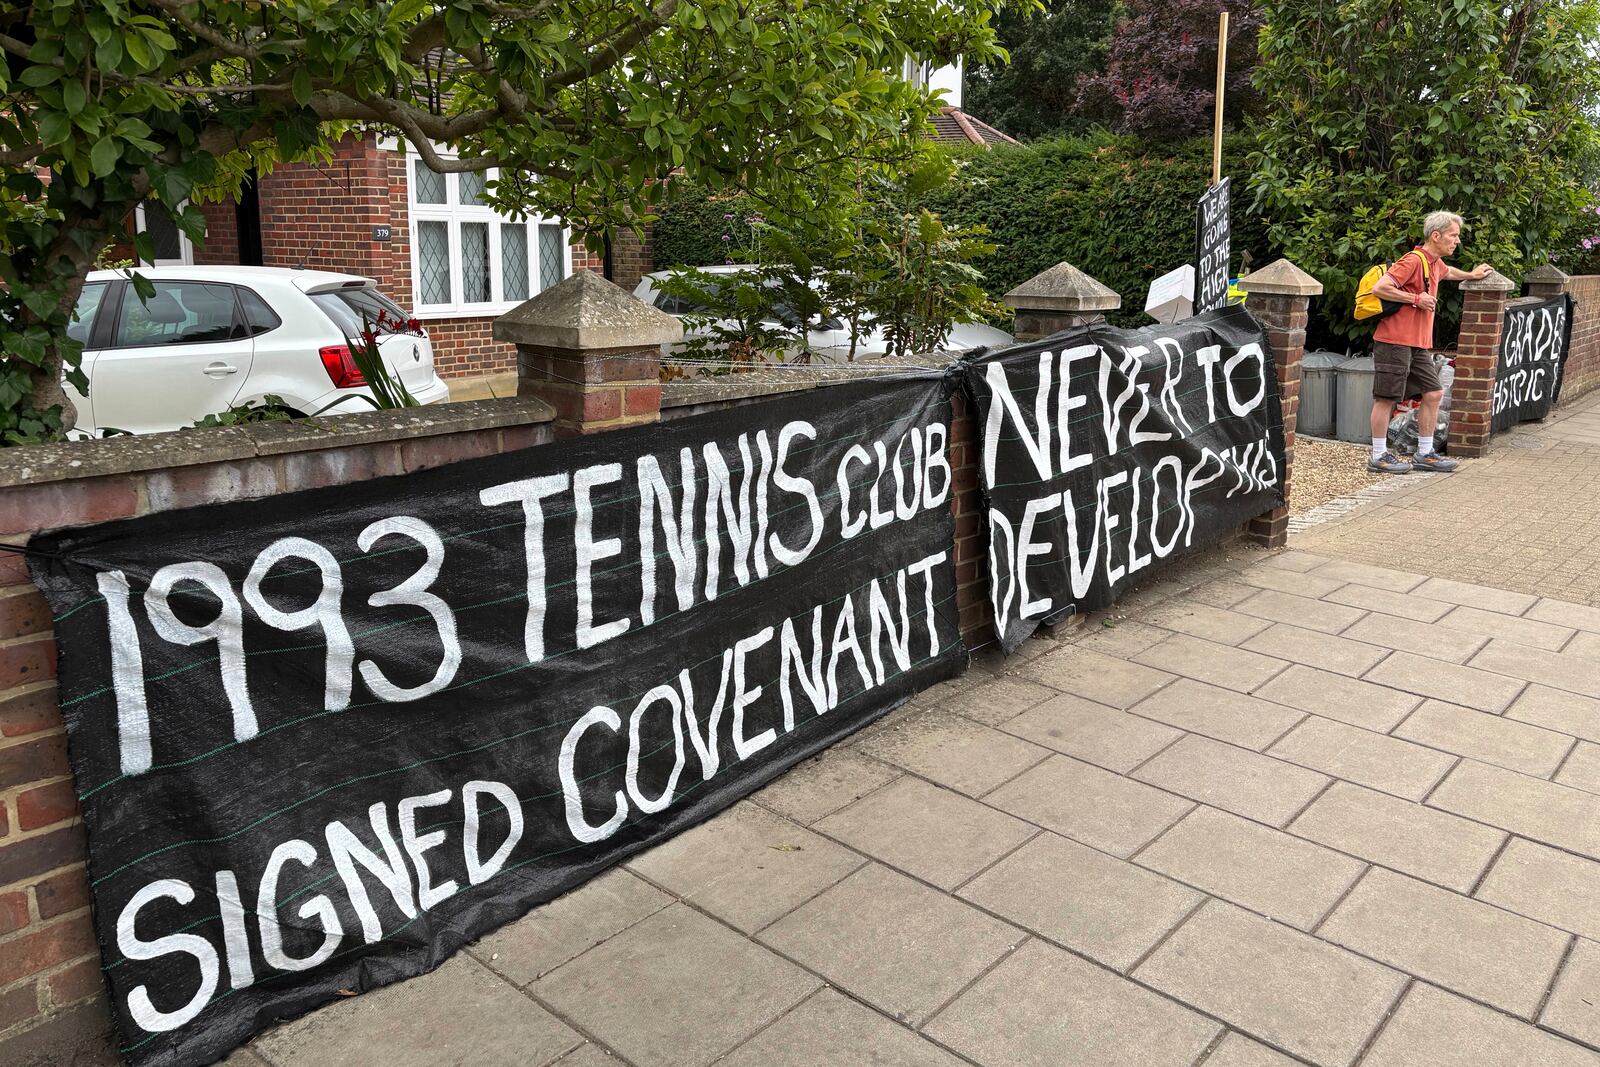 379
1993 TENNIS CLUB
SIGNED COVENANT
NEVER TO
DEVELOP THIS
WE ARE
GOING
TO THE
HIGH
GRADE
HISTORIC